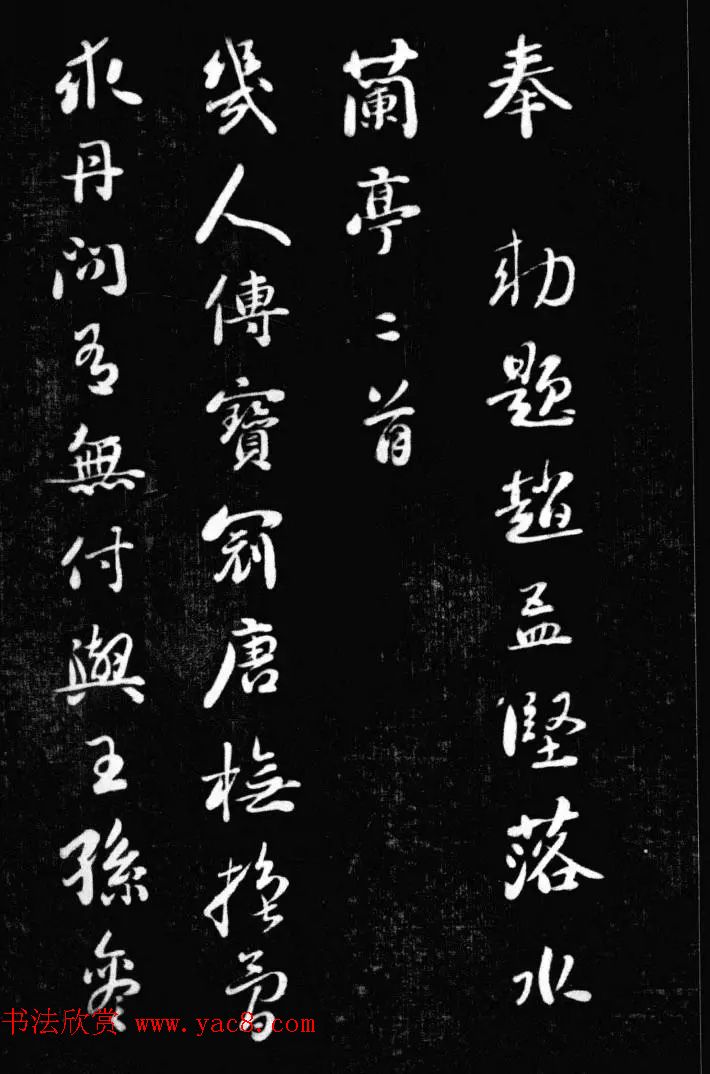 奉 勅題趙孟堅落水
蘭亭二首
幾人傳寶冠唐橅
求丹問有無付與王孫
书法欣赏 www.yac8.com